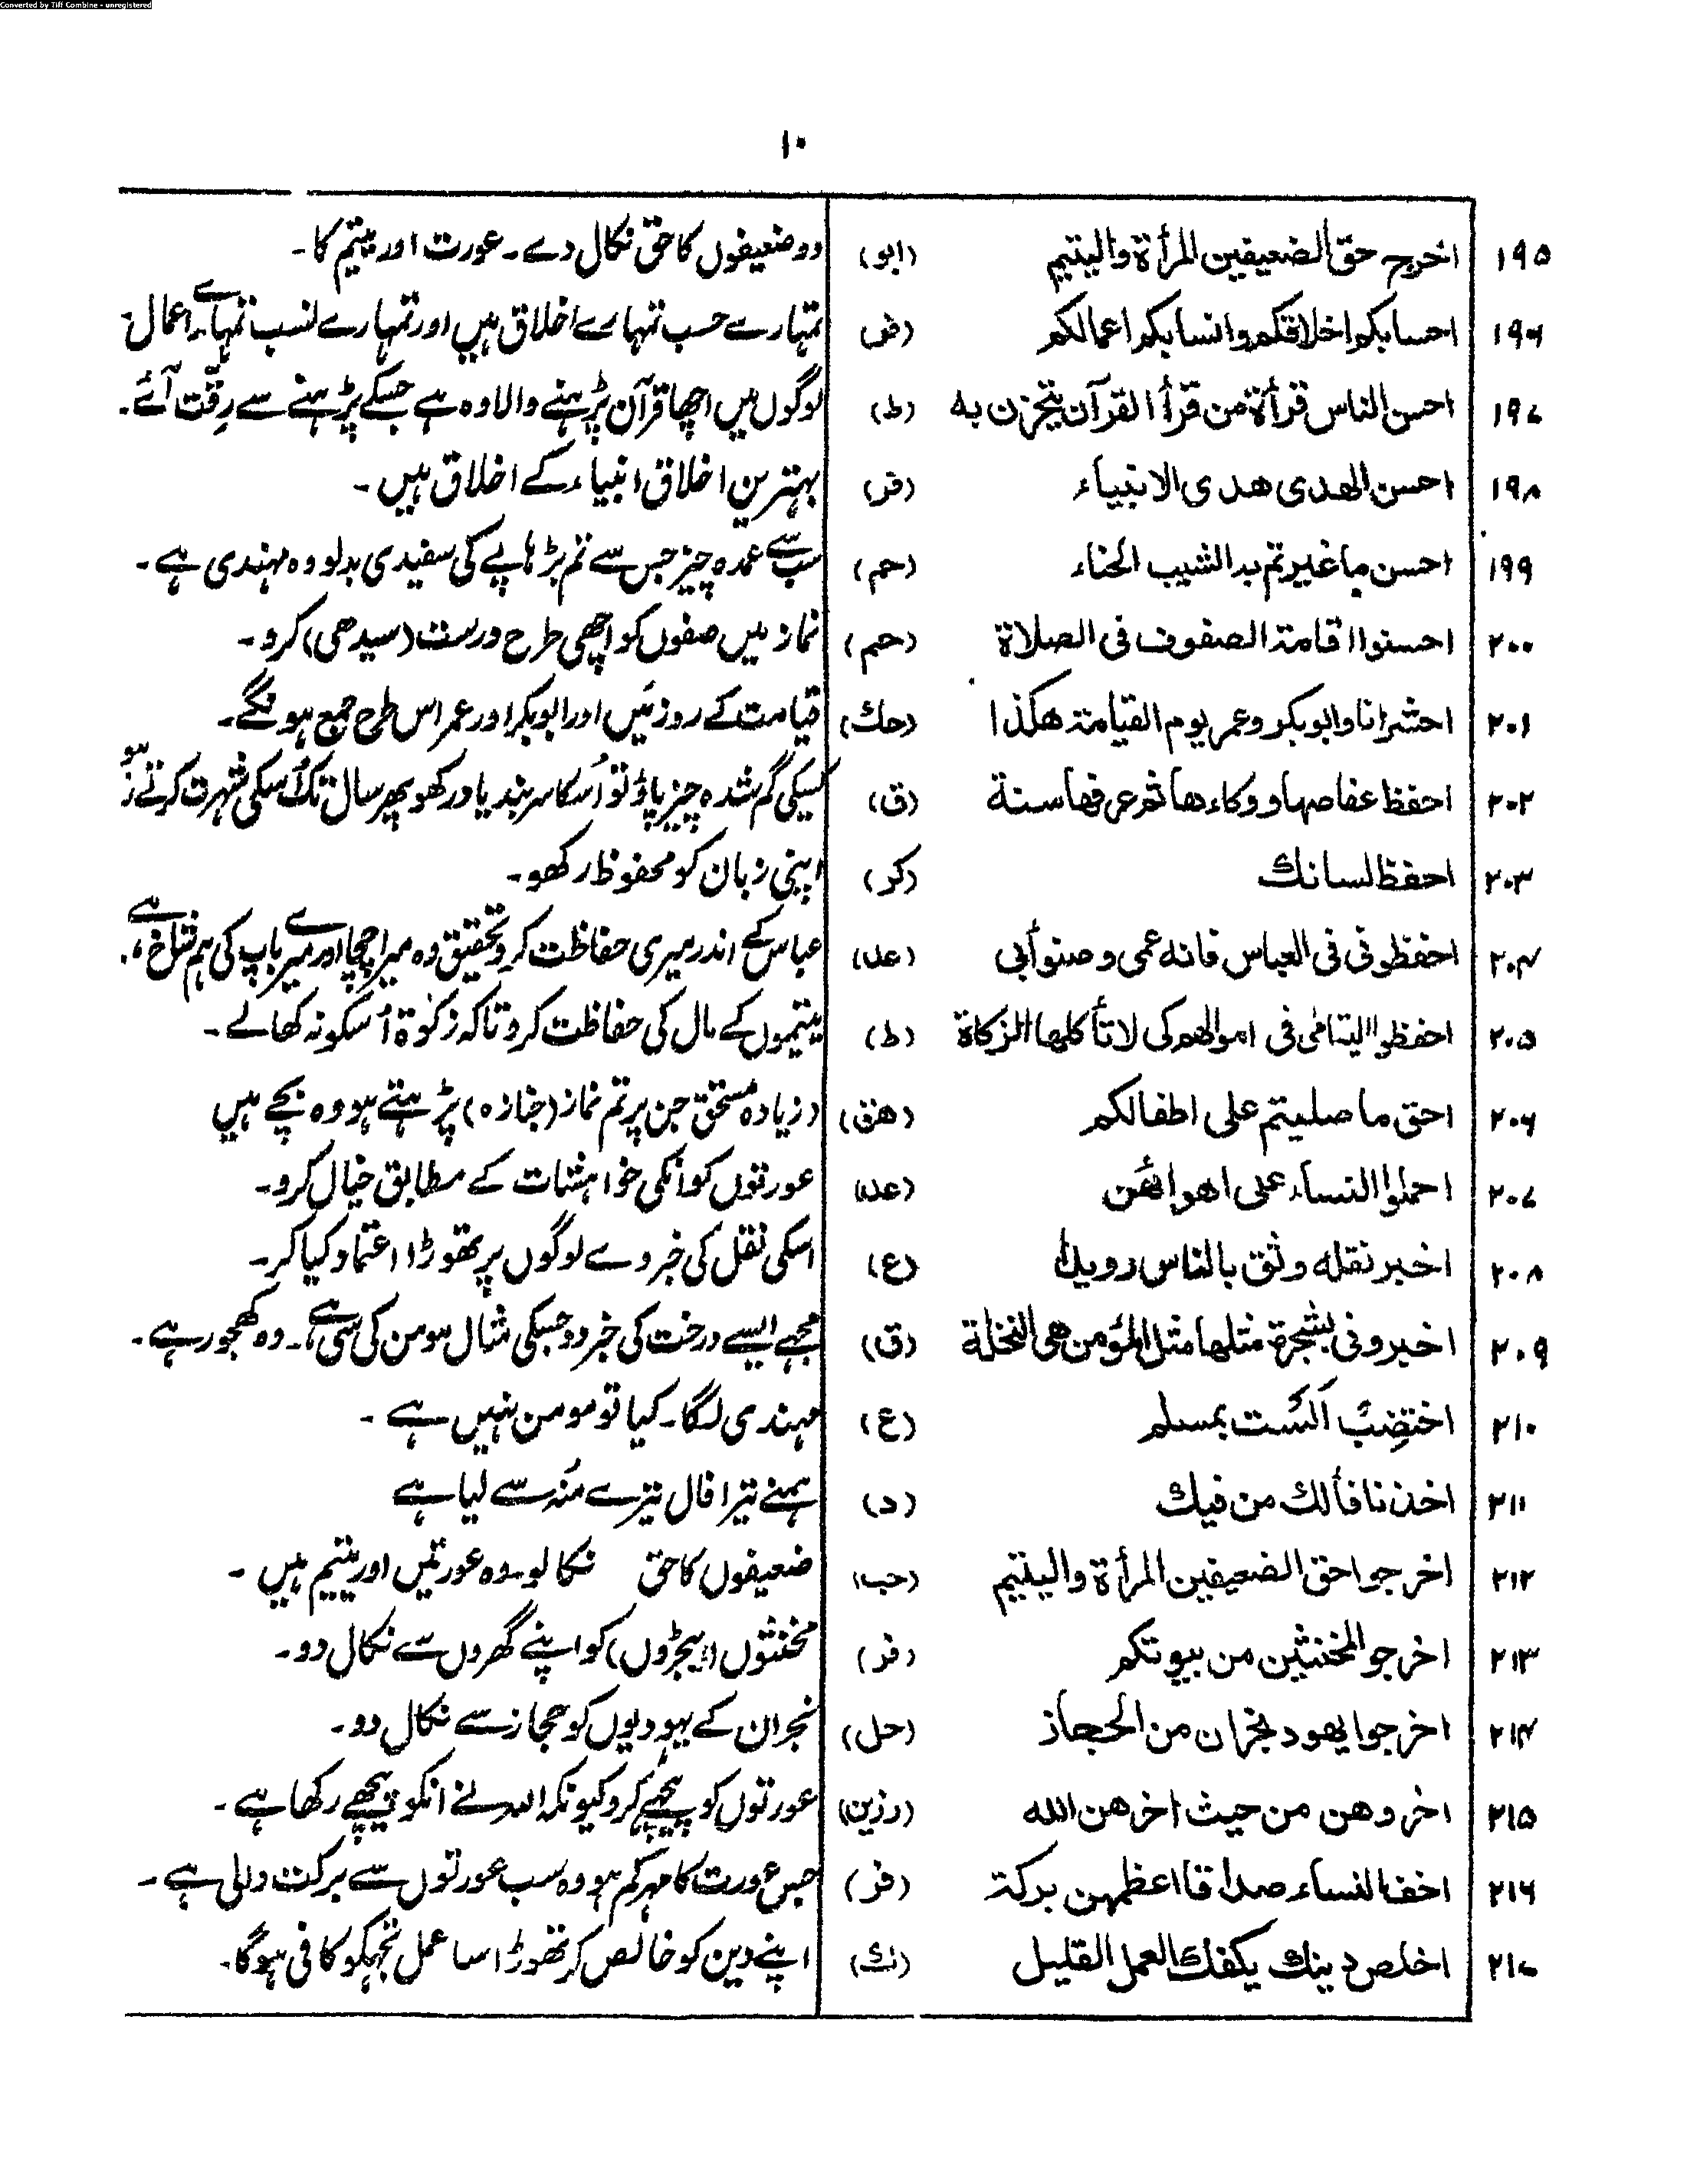 Converted by Tiff Combine - unregistered
۱۰
۱۹۵ اخرج حقّ الضعيفين المرأة واليتيم (ابو) دو ضعیفوں کا حق نکال دے۔ عورت اور یتیم کا۔
۱۹۶ احسابكم اخلاقكم وانسابكم اعمالكم (فر) تمہارے حسب تمہارے اخلاق ہیں اور تمہارے نسب تمہارے اعمال۔
۱۹۷ احسن الناس قرأة من قرأ القرآن يتحزن به (ط) لوگوں میں اچھا قرآن پڑہنے والا وہ ہے جسکے پڑہنے سے رقّت آئے۔
۱۹۸ احسن الهدى هدى الانبياء (فر) بہترین اخلاق انبیاء کے اخلاق ہیں۔
۱۹۹ احسن ما غيرتم به الشيب الحناء (حم) سب سے عمدہ چیز جس سے تم بڑہاپے کی سفیدی بدلو وہ مہندی ہے۔
۲۰۰ احسنوا اقامة الصفوف فى الصلاة (حم) نماز میں صفوں کو اچھی طرح درست (سیدھی) کرو۔
۲۰۱ احشر انا وابو بكر وعمر يوم القيامة هكذا (حك) قیامت کے روز میں اور ابو بکر اور عمر اس طرح جمع ہونگے۔
۲۰۲ احفظ عفاصها و وكاءها ثم عرفها سنة (ق) کسیکی گم شدہ چیز پاؤ تو اُسکا سربند یاد رکھو پھر سال تک اُسکی شہرت کرتے رہو
۲۰۳ احفظ لسانك (كر) اپنی زبان کو محفوظ رکھو۔
۲۰۴ احفظونى فى العباس فانه عمى وصنو أبى (عد) عباس کے اندر میری حفاظت کرو تحقیق وہ میرا چچا اور میرے باپ کی ہم شاخ ہے۔
۲۰۵ احفظوا اليتامٰى فى اموالهم كى لا تأكلها الزكاة (ط) یتیموں کے مال کی حفاظت کرو تاکہ زکوٰۃ اُسکو نہ کھالے۔
۲۰۶ احق ما صليتم على اطفالكم (هق) زیادہ مستحق جن پر تم نماز (جنازہ) پڑہتے ہو وہ بچے ہیں
۲۰۷ احملوا النساء على اهوائهن (عد) عورتوں کو انکی خواہشات کے مطابق خیال کرو۔
۲۰۸ اخبر نقله وثق بالناس رويدا (ع) اسکی نقل کی خبر دے لوگوں پر تھوڑا اعتماد کیا کر۔
۲۰۹ اخبرونى بشجرة مثلها مثل المؤمن هى النخلة (ق) مجہے ایسے درخت کی خبر دو جسکی مثال مومن کی سی ہے۔ وہ کھجور ہے۔
۲۱۰ اختضِبْ اَلَسْت بمسلم (ع) مہندی لگا۔ کیا تو مومن نہیں ہے۔
۲۱۱ اخذنا فألك من فيك (د) ہمنے تیرا فال تیرے مُنہ سے لیا ہے
۲۱۲ اخرجوا حق الضعيفين المرأة واليتيم (حب) ضعیفوں کا حق نکالو۔ وہ عورتیں اور یتیم ہیں۔
۲۱۳ اخرجو المخنثين من بيوتكم (فر) مخنثوں (ہیجڑوں) کو اپنے گھروں سے نکال دو۔
۲۱۴ اخرجوا يهود نجران من الحجاز (حل) نجران کے یہودیوں کو حجاز سے نکال دو۔
۲۱۵ اخروهن من حيث اخرهن الله (رزين) عورتوں کو پیچھے کرو کیونکہ اللہ نے انکو پیچھے رکھا ہے۔
۲۱۶ اخف النساء صداقا اعظمهن بركة (فر) جس عورت کا مہر کم ہو وہ سب عورتوں سے برکت والی ہے۔
۲۱۷ اخلص دينك يكفك العمل القليل (ك) اپنے دین کو خالص کر تھوڑا سا عمل تجھکو کافی ہوگا۔